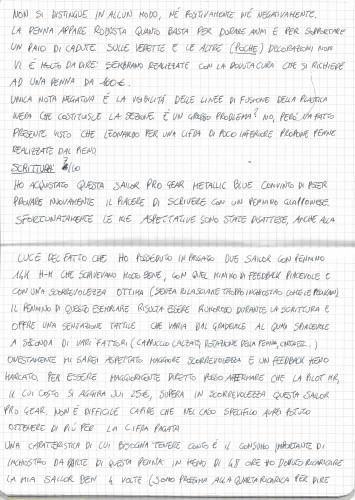 NON SI DISTINGUE IN ALCUN MODO, NÉ POSITIVAMENTE NÉ NEGATIVAMENTE.
LA PENNA APPARE ROBUSTA QUANTO BASTA PER DURARE ANNI E PER SUPPORTARE
UN PAIO DI CADUTE. SULLE VERETTE E LE ALTRE (POCHE) DECORAZIONI NON
VI È MOLTO DA DIRE: SEMBRANO REALIZZATE CON LA DOVUTA CURA CHE SI RICHIEDE
AD UNA PENNA DA 100€.
UNICA NOTA NEGATIVA È LA VISIBILITÀ DELLE LINEE DI FUSIONE DELLA PLASTICA
NERA CHE COSTITUISCE LA SEZIONE. È UN GROSSO PROBLEMA? NO, PERÒ VA FATTO
PRESENTE VISTO CHE LEONARDO PER UNA CIFRA DI POCO INFERIORE PROPONE PENNE
REALIZZATE DAL PIENO.
SCRITTURA /10
HO ACQUISTATO QUESTA SAILOR PRO GEAR METALLIC BLUE CONVINTO DI POTER
PROVARE NUOVAMENTE IL PIACERE DI SCRIVERE CON UN PENNINO GIAPPONESE.
SFORTUNATAMENTE LE MIE ASPETTATIVE SONO STATE DISATTESE, ANCHE ALLA
LUCE DEL FATTO CHE HO POSSEDUTO IN PASSATO DUE SAILOR CON PENNINO
14K H-M CHE SCRIVEVANO MOLTO BENE, CON QUEL MINIMO DI FEEDBACK PIACEVOLE E
CON UNA SCORREVOLEZZA OTTIMA (SENZA RILASCIARE TROPPO INCHIOSTRO COME LE PELIKAN).
IL PENNINO DI QUESTO ESEMPLARE RISULTA ESSERE RUMOROSO DURANTE LA SCRITTURA E
OFFRE UNA SENSAZIONE TATTILE CHE VARIA DAL GRADEVOLE AL QUASI SPIACEVOLE
A SECONDA DI VARI FATTORI (CAPPUCCIO CALZATO, ROTAZIONE DELLA PENNA,
ONESTAMENTE MI SAREI ASPETTATO MAGGIORE SCORREVOLEZZA E UN FEEDBACK MENO
MARCATO. PER ESSERE MAGGIORMENTE DIRETTO POSSO AFFERMARE CHE LA PILOT MR,
IL CUI COSTO SI AGGIRA SUI 25€, SUPERA IN SCORREVOLEZZA QUESTA SAILOR
PRO GEAR. NON È DIFFICILE CAPIRE CHE NEL CASO SPECIFICO AVREI POTUTO
OTTENERE DI PIÙ PER LA CIFRA PAGATA.
UNA CARATTERISTICA DI CUI BISOGNA TENERE CONTO È IL CONSUMO IMPORTANTE DI
INCHIOSTRO DA PARTE DI QUESTA PENNA: IN MENO DI 48 ORE HO DOVUTO RICARICARE
LA MIA SAILOR BEN 4 VOLTE (SONO PROSSIMO ALLA QUARTA RICARICA PER DIRE